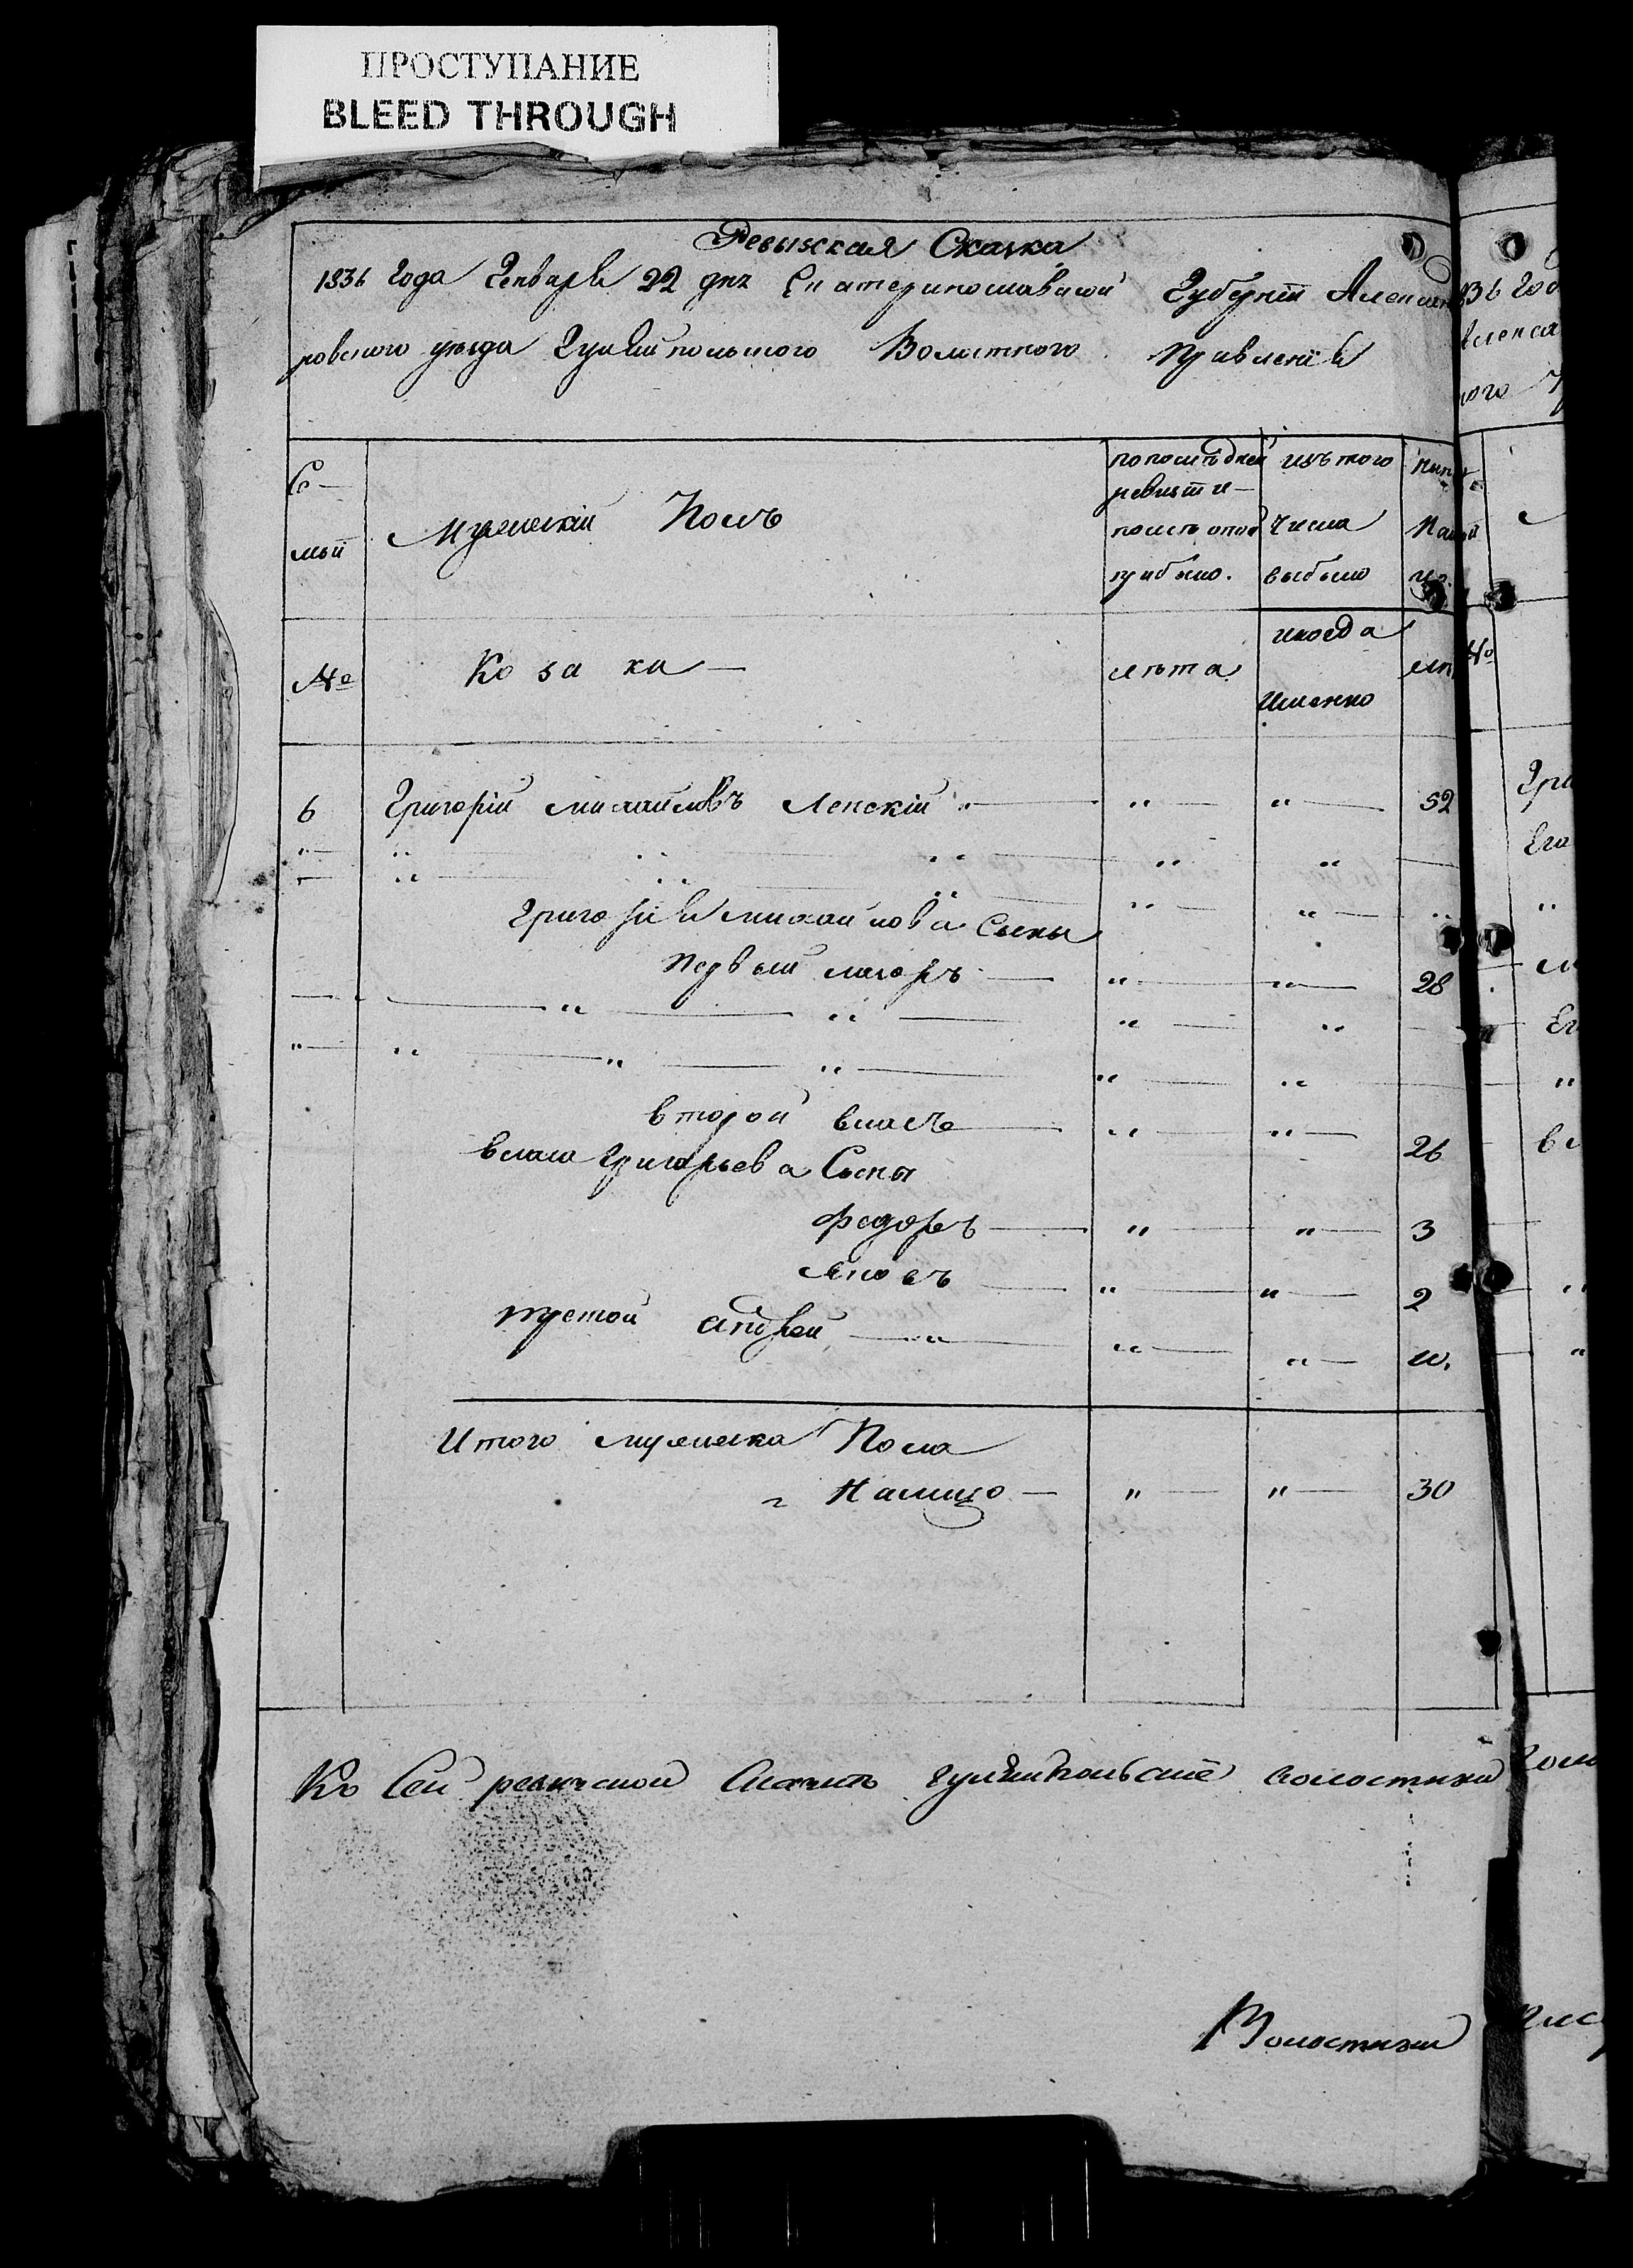 ПРОСТУПАНИЕ
BLEED THROUGH
Ревизская Сказка
1836 Года Генваря 22 дня Екатеринославской Губернїи Александ
ровского уезда Гуляйпольского Волостного Правленїя
Се-
мьи
Мужескїй Полъ
попоследней
ревизїи
после оной
прибыло.
изъ того
Числа
выбыло
№
Козака
лета
иногда
Именно
6 Григорїй михайловъ Ленскїй " " " 52
Григорїя михайлова Сыны " "
Первый " " 28
второй власъ " " 26
власа Григорьева Сыны
федоръ " " 3
" " 2
Андрей " " "
Итого мужеска Пола
Налицо " " 30
Къ Сей ревизской Сказке гуляйпольское волостное
Волостной
36 Год
Алекса
ого
№
Гри
Его